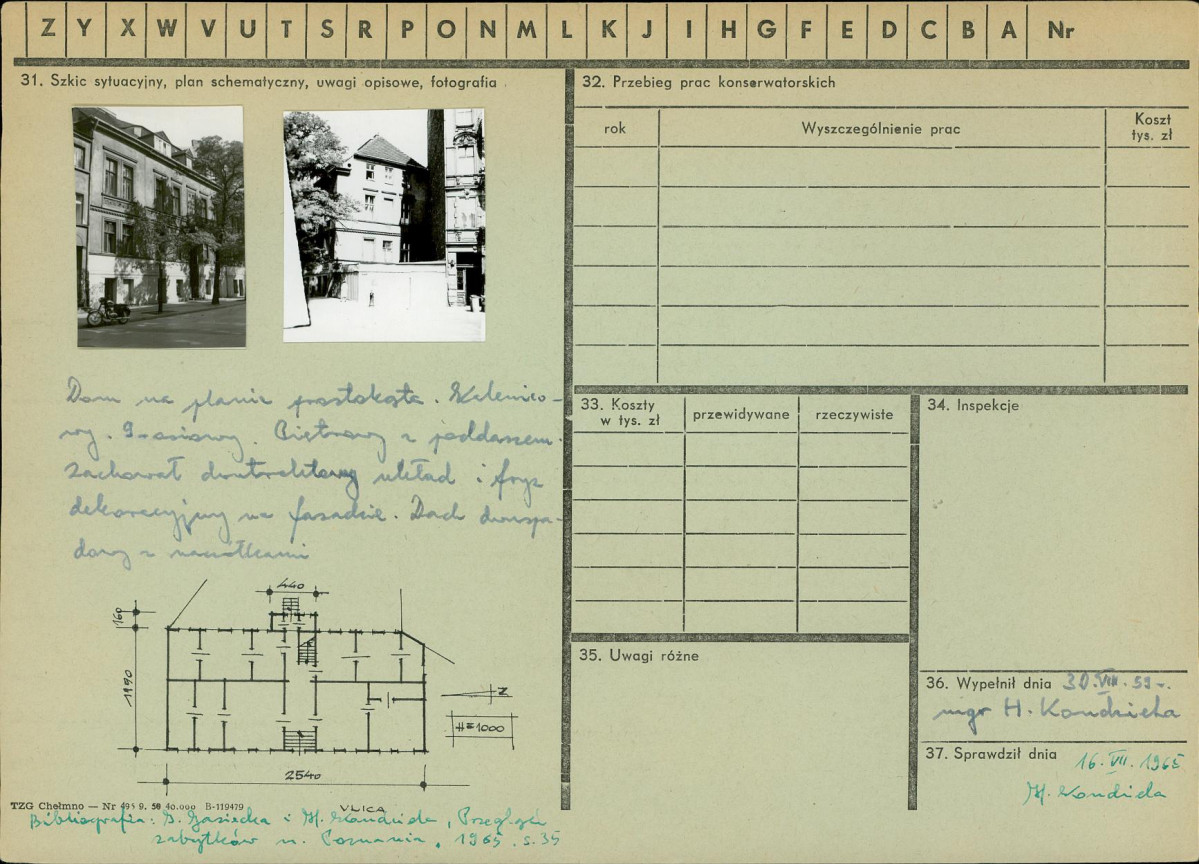 Z Y X W V U T S R P O N M L K J I H G F E D C B A Nr
31. Szkic sytuacyjny, plan schematyczny, uwagi opisowe, fotografia
Dom na planie prostokąta. Kalenico-
wy. 9-osiowy. Piętrowy z poddaszem.
Zachował dwutraktowy układ i fryz
dekoracyjny na fasadzie. Dach dwuspa-
dowy z naczółkami
440
160
1990
Z
H=1000
2540
ULICA
TZG Chełmno — Nr 495 9. 58 40.000 B-119479
Bibliografia: i H. Kondziela, Przegląd
zabytków m. Poznania, 1965. s. 35
32. Przebieg prac konserwatorskich
rok
Wyszczególnienie prac
Koszt
tys. zł
33. Koszty
w tys. zł
przewidywane
rzeczywiste
34. Inspekcje
35. Uwagi różne
36. Wypełnił dnia 30.VIII.59 r.
mgr H. Kondziela
37. Sprawdził dnia 16.VII.1965
H. Kondziela